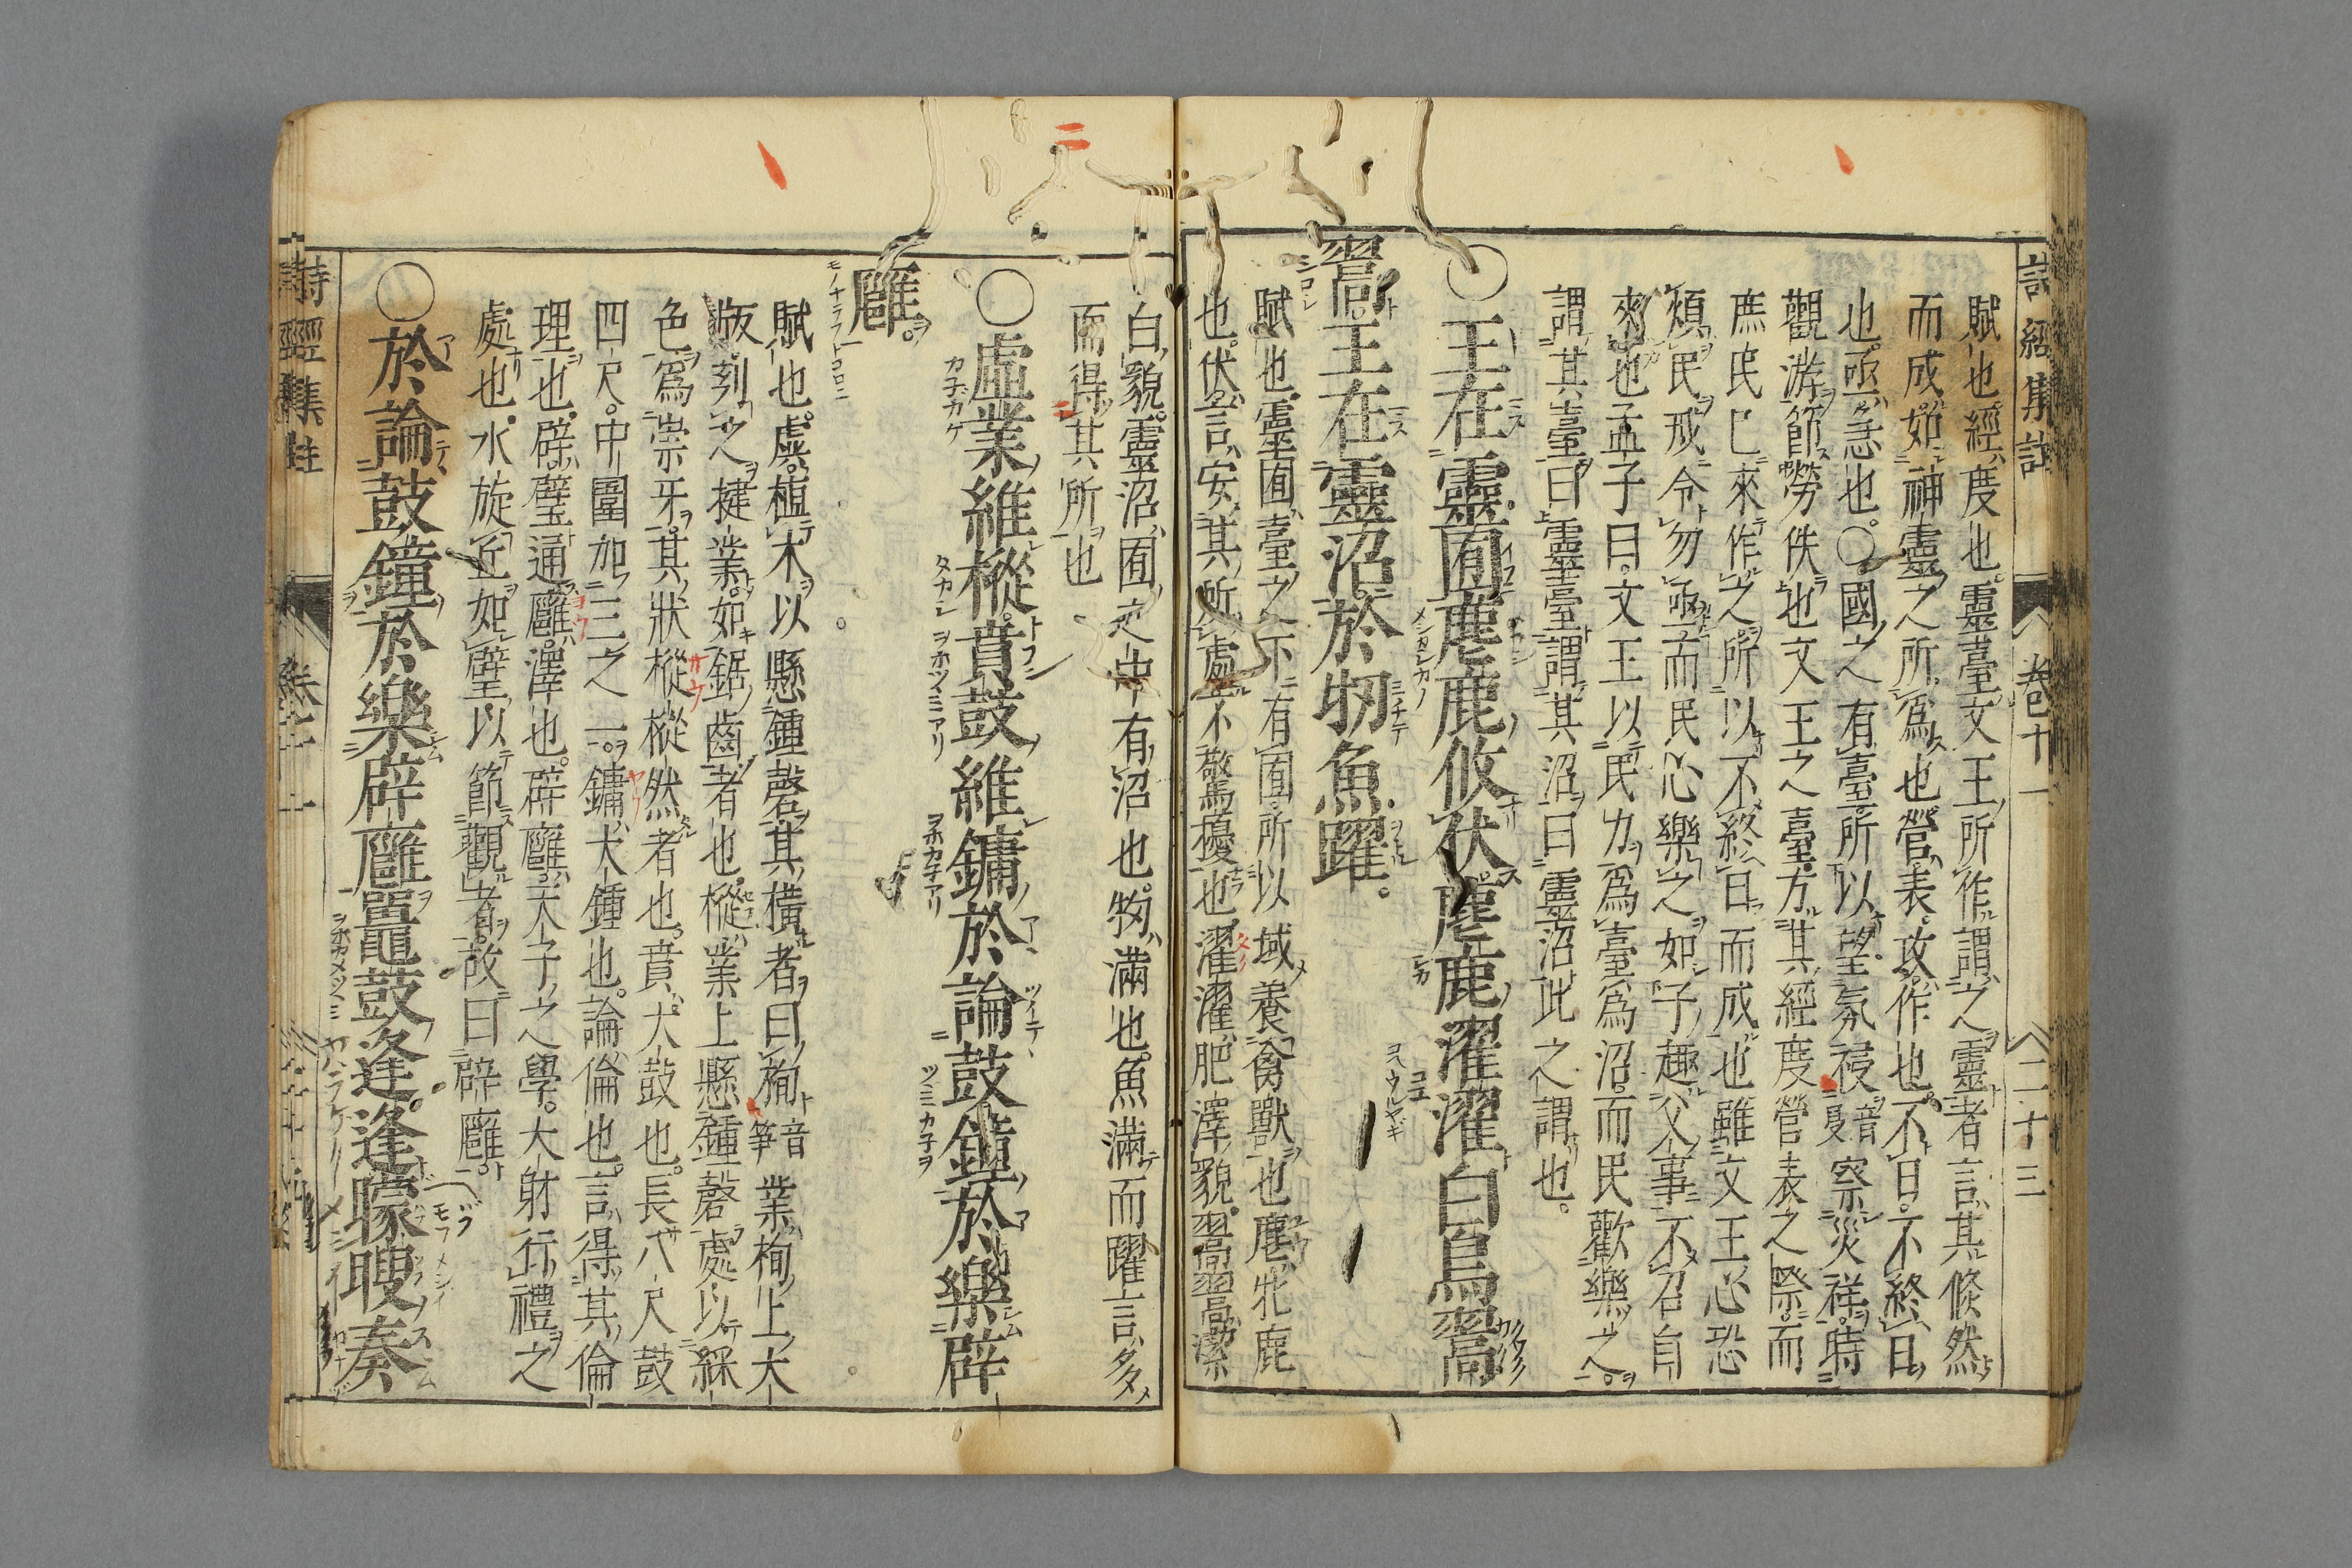 詩經集註　卷十一　二十三
賦也經度也靈臺文王所作謂之靈者言其倐然
而成如神靈之所爲也營表攻作也不日不終日
也亟急也○國之有臺所以望氛祲音夋察災祥時
觀游節勞佚也文王之臺方其經度營表之際而
庶民已來作之所以不終日而成也雖文王心恐
煩民戒令勿亟而民心樂之如子趣父事不召自
來也孟子曰文王以民力爲臺爲沼而民歡樂之
謂其臺曰靈臺謂其沼曰靈沼此之謂也
○王在靈囿麀鹿攸伏麀鹿濯濯白鳥翯
翯王在靈沼於牣魚躍
賦也靈囿臺之下有囿所以域養禽獸也麀牝鹿
也伏言安其所處不驚擾也濯濯肥澤貌翯翯潔
白貌靈沼囿之中有沼也牣滿也魚滿而躍言多
而得其所也
○虡業維樅賁鼓維鏞於論鼓鐘於樂辟
廱
賦也虡植木以懸鍾磬其橫者曰栒音筍業栒上大
版刻之捷業如鋸齒者也樅業上懸鍾磬處以綵
色爲崇牙其狀樅樅然者也賁大鼓也長八尺鼓
四尺中圍加三之一鏞大鍾也論倫也言得其倫
理也辟璧通廱澤也辟廱天子之學大射行禮之
處也水旋丘如璧以節觀者故曰辟廱
○於論鼓鐘於樂辟廱鼉鼓逢逢矇瞍奏
詩經集註